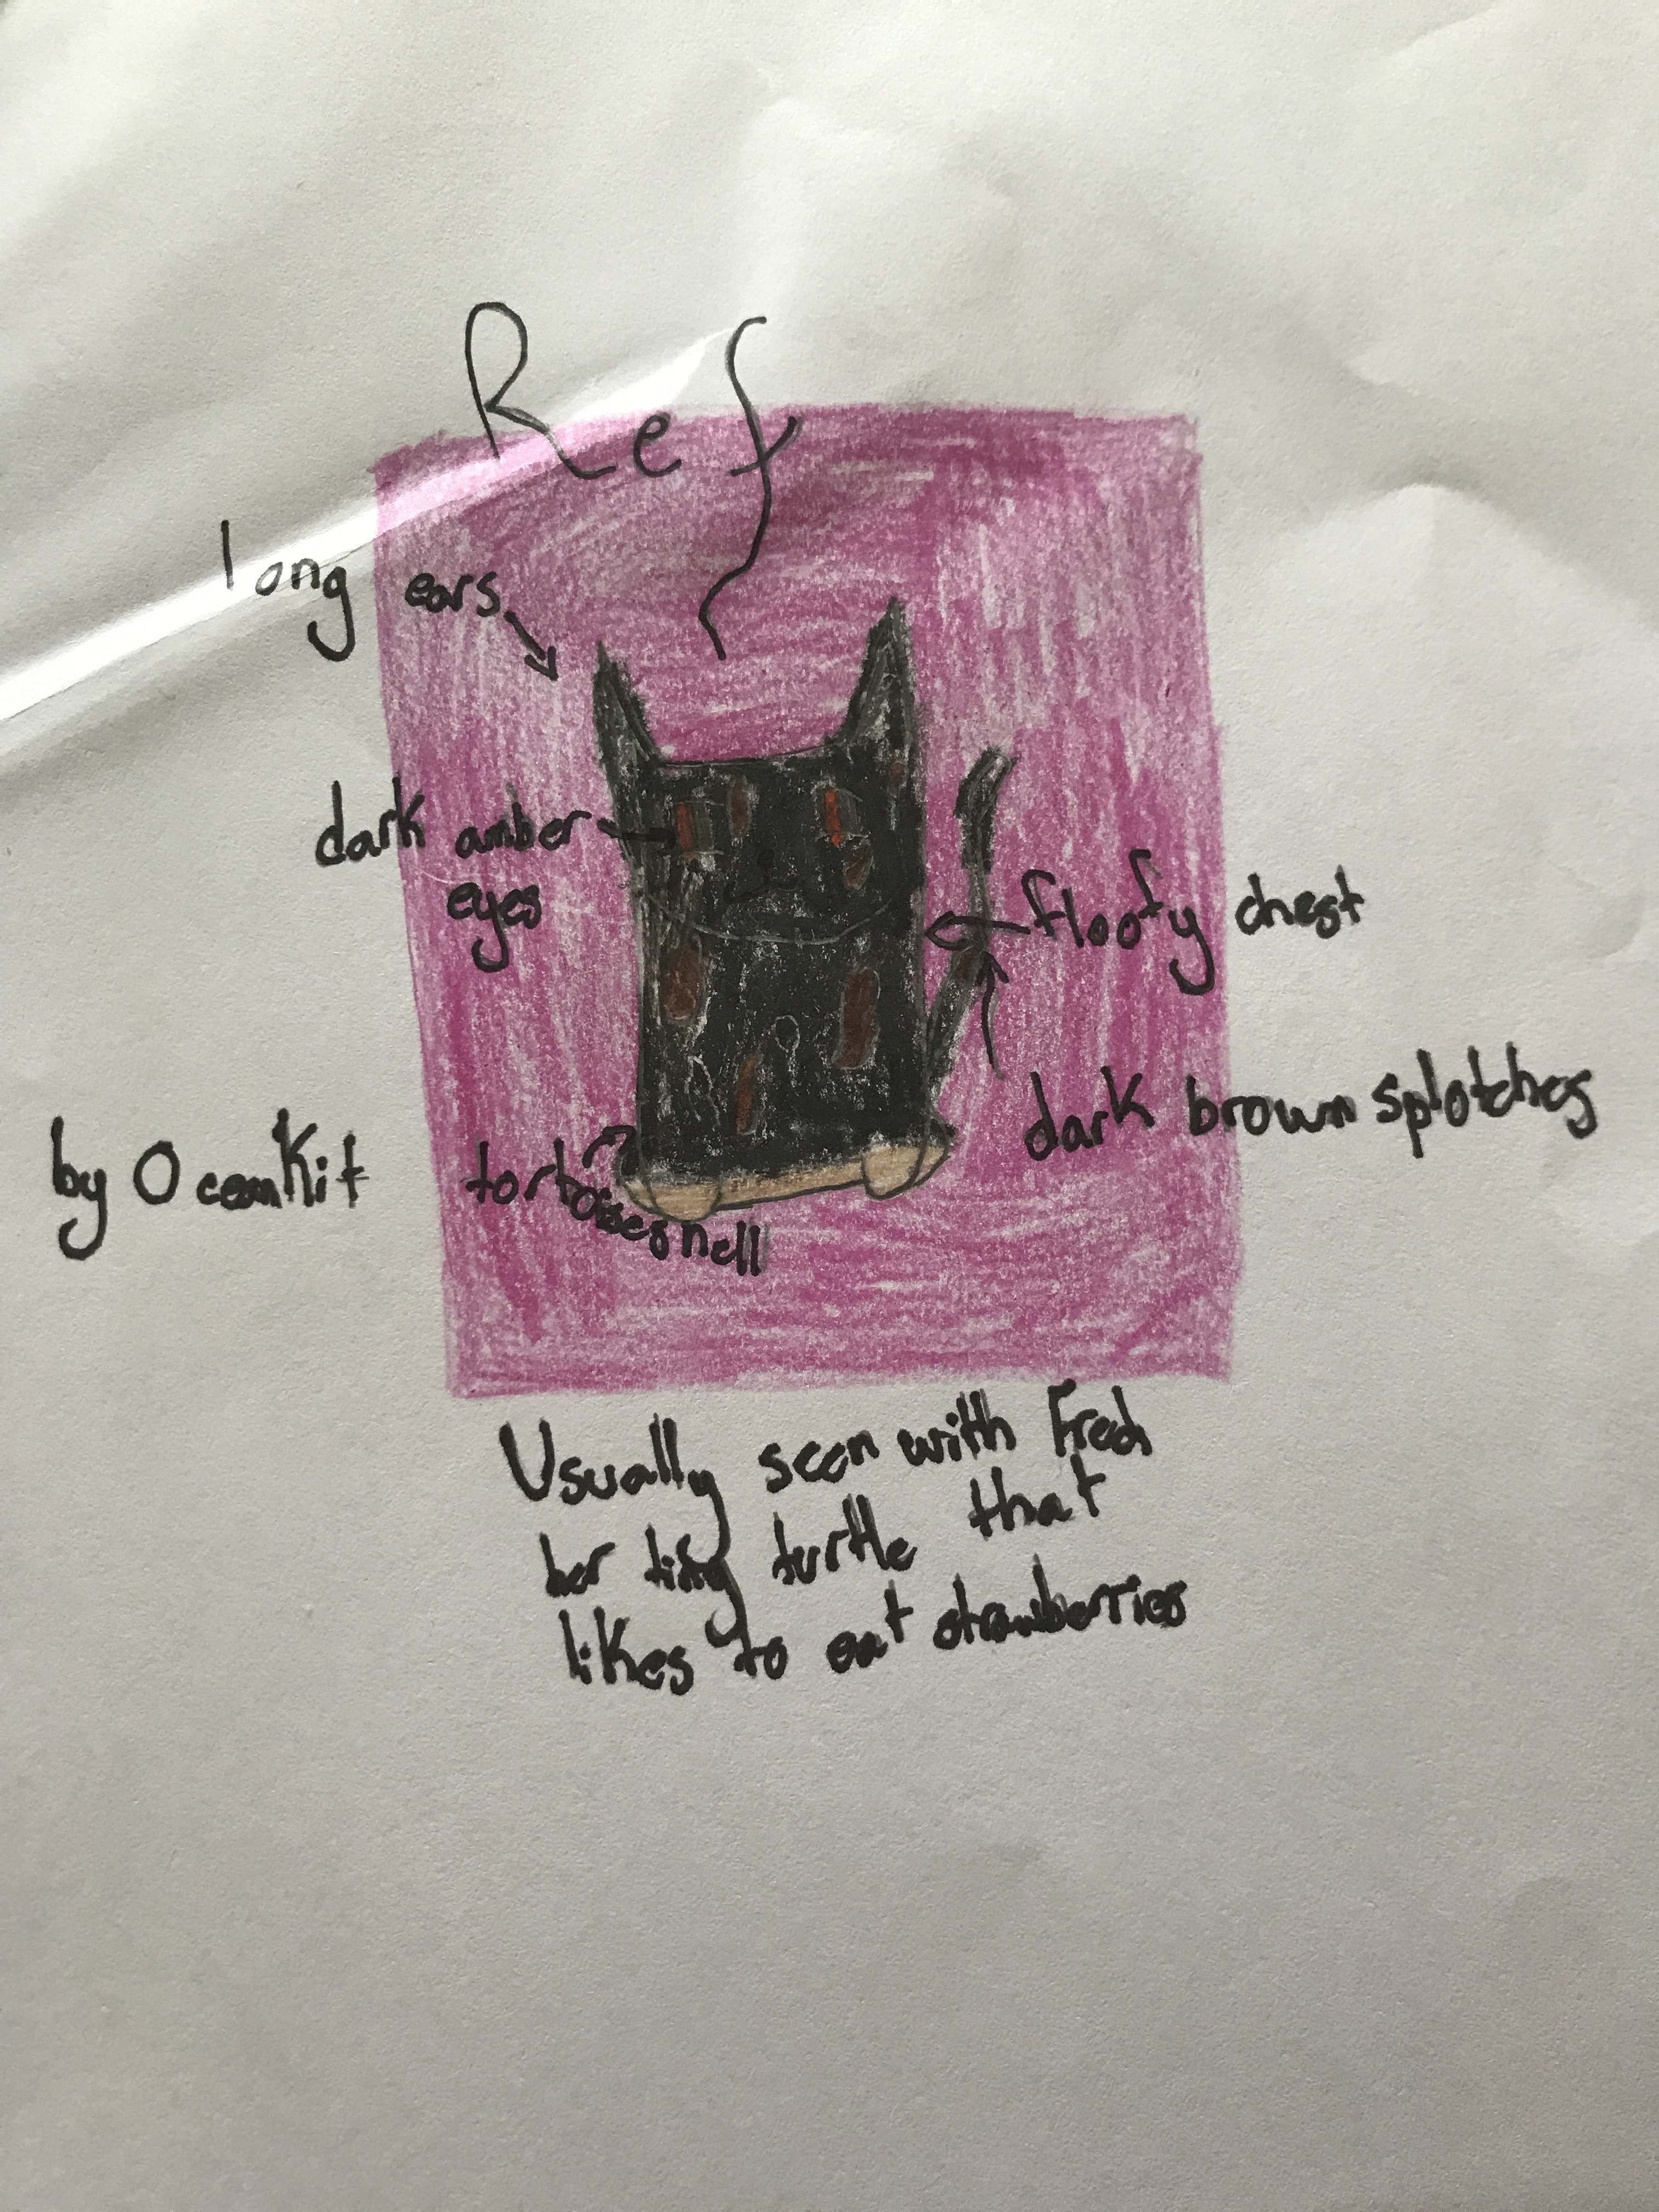 Ref
long ears
dark amber
eyes
floofy chest
dark brown splotches
by OceanKit
tortoiseshell
Usually seen with Fred
her tiny turtle that
likes to eat strawberries